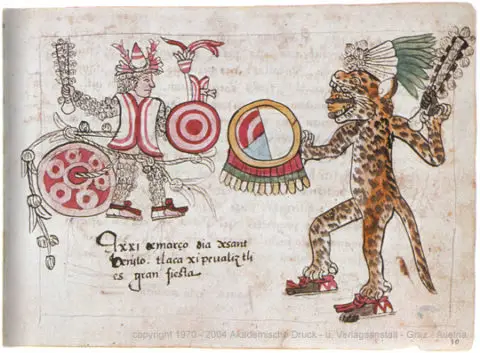 Axxi de março dia de sant
benito. tlaca xipevaliztli
es gran fiesta
copyright 1970 - 2004 Akademische Druck - u. Verlagsanstalt - Graz - Austria
30